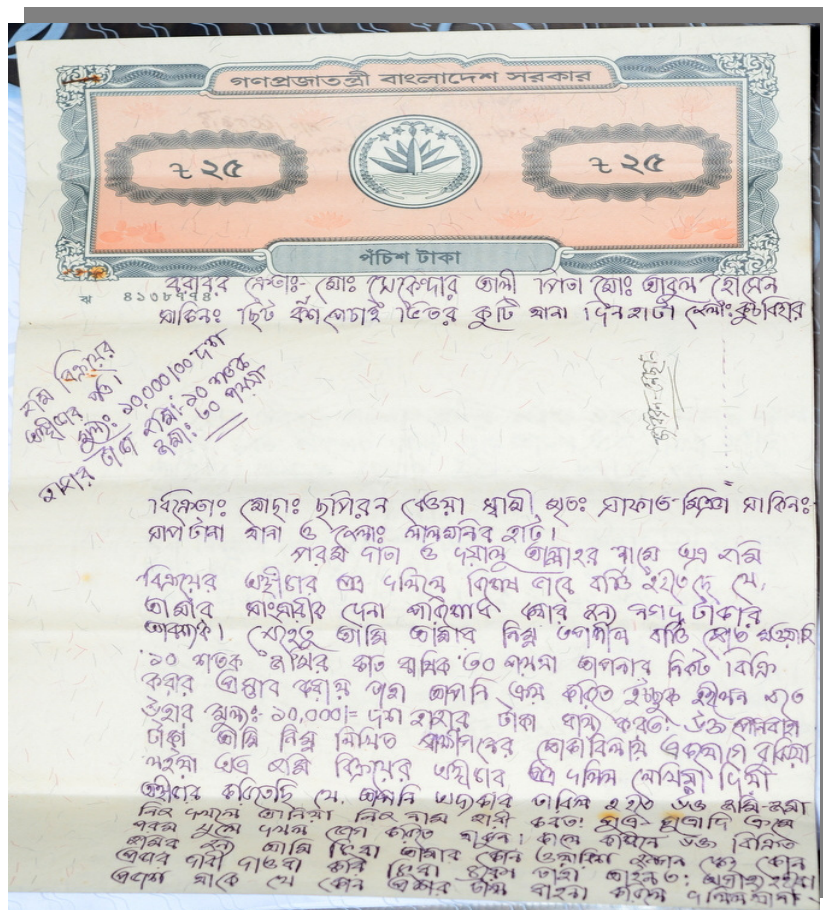 গণপ্রজাতন্ত্রী বাংলাদেশ সরকার
৳ ২৫
৳ ২৫
পঁচিশ টাকা
বরাবর ক্রেতাঃ- মোঃ সেকেন্দার আলী পিতা মোঃ আবুল হোসেন
সাকিনঃ ছিট বাঁশপেচাই ভিতর কুটি থানা দিনহাটা জেলাঃ কুচবিহার
জমি বিক্রয়ের
অঙ্গীকার পত্র।
মূল্যঃ ১০,০০০/০০ দশ
হাজার টাকা জমিঃ ১০ শতক
বিক্রেতাঃ মোছাঃ ছপিরন বেওয়া স্বামী মৃতঃ সাকিনঃ
থানা ও জেলাঃ লালমনির হাট।
পরম দাতা ও দয়ালু আল্লাহর নামে অত্র জমি
বিক্রয়ের অঙ্গীকার পত্র দলিলে বিশেষ ভাবে ব্যক্ত হইতেছে যে,
আমার সাংসারীক দেনা পরিশোধ করার জন্য নগদ টাকার
আবশ্যক। যেহেতু আমি আমার নিম্ন
১০ শতক জমির কাত খাজিক ৩০ পয়সা আপনার নিকট বিক্রি
করার প্রস্তাব করায় তাহা আপনি ক্রয় করিতে ইচ্ছুক হইলেন
উহার মূল্যঃ ১০,০০০/= দশ হাজার টাকা ধার্য্য করতঃ উক্ত
টাকা আমি নিম্ন লিখিত স্বাক্ষীগনের মোকাবিলায় একযোগে বুঝিয়া
লইয়া অত্র জমি বিক্রয়ের অঙ্গীকার পত্র দলিল লেখিয়া দিয়া
অঙ্গীকার করিতেছি যে, আপনি অদ্যকার তারিখ হইতে উক্ত জমি-জমা
নিজ দখলে আনিয়া নিজ নাম জারী করতঃ পুত্র-
পরম সুখে দখল ভোগ করিতে থাকুন। কালে কস্মিনে উক্ত বিক্রিত
জমির জন্য আমি কিংবা আমার কোন ওয়ারিশ কেহ কোন
প্রকার দাবী দাওয়া করি কিংবা করেন তাহা
প্রকাশ থাকে যে কোন প্রকার